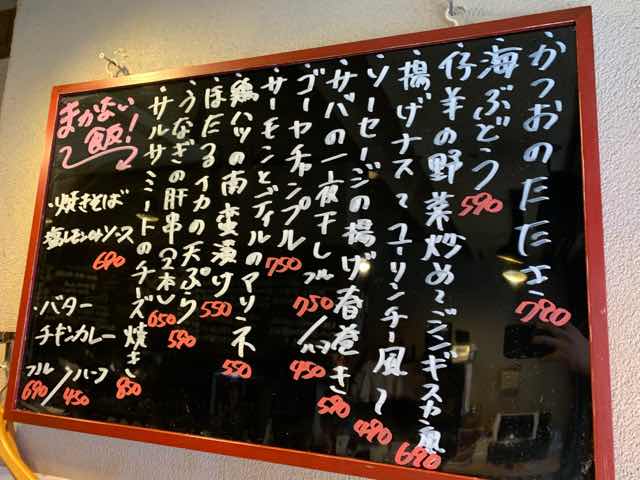 ・かつおのたたき 780
・海ぶどう 590
・仔羊の野菜炒め〜ジンギスカン風 690
・揚げナス〜ユーリンチー風〜 490
・ソーセージの揚げ春巻き 590
・サバの一夜干し フル750/ハーフ450
・ゴーヤチャンプル 750
・サーモンとディルのマリネ 550
・鶏ハツの南蛮漬け 550
・ほたるイカの天ぷら 590
・うなぎの肝串(2本) 650
・サルサミートのチーズ焼き 850
まかない
飯!
・焼きそば
塩レモンorソース
690
・バター
チキンカレー
フル/ハーフ
690 450